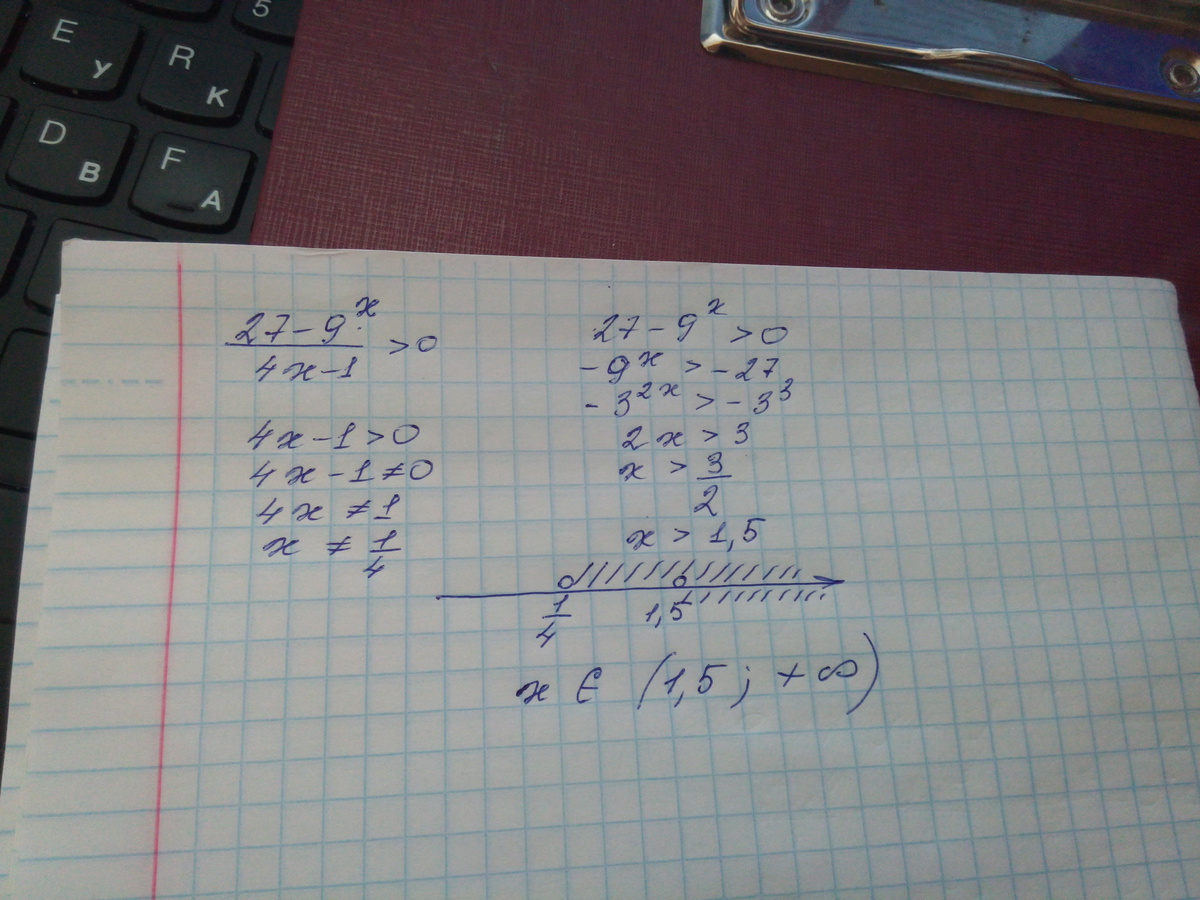 5
E У
R К
D В
F А
27 - 9^x
———— > 0
4x - 1
4x - 1 > 0
4x - 1 ≠ 0
4x ≠ 1
x ≠ 1/4
27 - 9^x > 0
- 9^x > - 27
- 3^2x > - 3^3
2x > 3
x > 3/2
x > 1,5
1/4 1,5
x ∈ (1,5 ; + ∞)